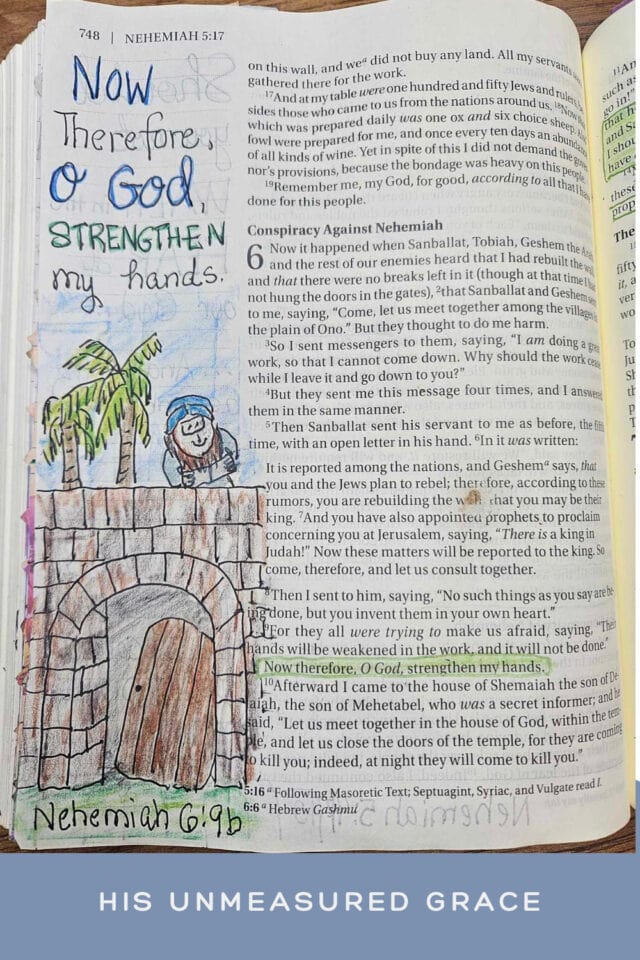 748 | NEHEMIAH 5:17
Now
Therefore,
O God,
STRENGTHEN
my hands.
Nehemiah 6:9b
on this wall, and weᵃ did not buy any land. All my servants
gathered there for the work.
¹⁷And at my table were one hundred and fifty Jews and rulers, be-
sides those who came to us from the nations around us. ¹⁸Now that
which was prepared daily was one ox and six choice sheep. Also
fowl were prepared for me, and once every ten days an abundance
of all kinds of wine. Yet in spite of this I did not demand the gover-
nor's provisions, because the bondage was heavy on this people.
¹⁹Remember me, my God, for good, according to all that I have
done for this people.
Conspiracy Against Nehemiah
6 Now it happened when Sanballat, Tobiah, Geshem the Arab,
and the rest of our enemies heard that I had rebuilt the wall,
and that there were no breaks left in it (though at that time I had
not hung the doors in the gates), ²that Sanballat and Geshem sent
to me, saying, "Come, let us meet together among the villages in
the plain of Ono." But they thought to do me harm.
³So I sent messengers to them, saying, "I am doing a great
work, so that I cannot come down. Why should the work cease
while I leave it and go down to you?"
⁴But they sent me this message four times, and I answered
them in the same manner.
⁵Then Sanballat sent his servant to me as before, the fifth
time, with an open letter in his hand. ⁶In it was written:
It is reported among the nations, and Geshemᵃ says, that
you and the Jews plan to rebel; therefore, according to these
rumors, you are rebuilding the wall, that you may be their
king. ⁷And you have also appointed prophets to proclaim
concerning you at Jerusalem, saying, "There is a king in
Judah!" Now these matters will be reported to the king. So
come, therefore, and let us consult together.
⁸Then I sent to him, saying, "No such things as you say are be-
ing done, but you invent them in your own heart."
⁹For they all were trying to make us afraid, saying, "Their
hands will be weakened in the work, and it will not be done."
Now therefore, O God, strengthen my hands.
¹⁰Afterward I came to the house of Shemaiah the son of De-
laiah, the son of Mehetabel, who was a secret informer; and he
said, "Let us meet together in the house of God, within the tem-
ple, and let us close the doors of the temple, for they are coming
to kill you; indeed, at night they will come to kill you."
5:16 ᵃ Following Masoretic Text; Septuagint, Syriac, and Vulgate read I.
6:6 ᵃ Hebrew Gashmu
HIS UNMEASURED GRACE